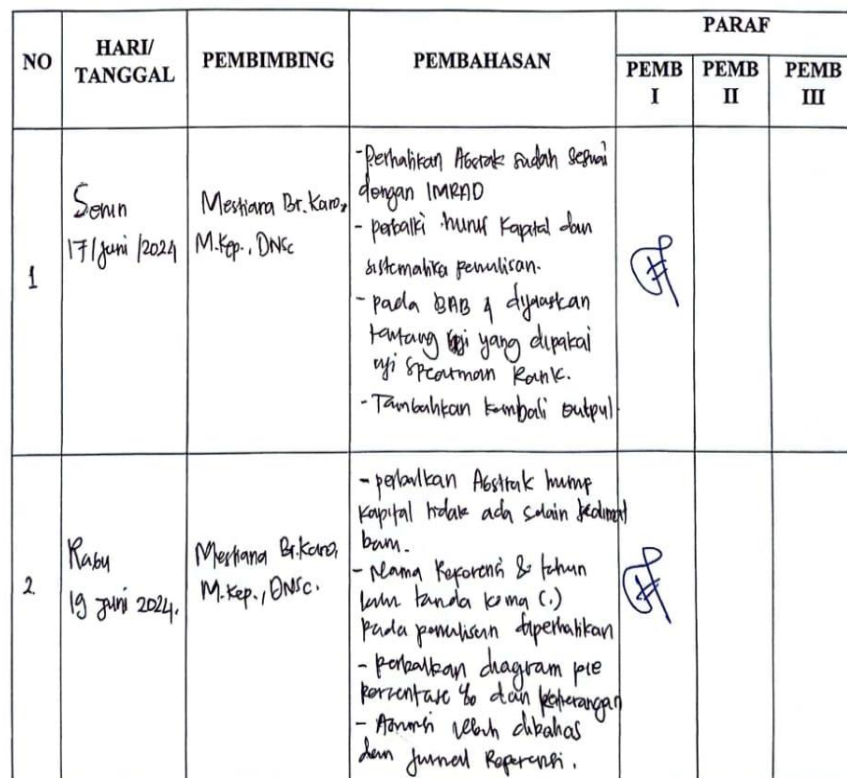 NO
HARI/
TANGGAL
PEMBIMBING
PEMBAHASAN
PARAF
PEMB
I
PEMB
II
PEMB
III
1
Senin
17/Juni/2024
Mestiana Br. Karo,
M.Kep., DNSc
- Perhatikan Abstrak sudah sesuai
dengan IMRAD
- perbaiki huruf Kapital dan
sistematika penulisan.
- pada BAB 4 dijelaskan
tentang uji yang dipakai
uji Spearman Rank.
- Tambahkan kembali output.
2
Rabu
19 Juni 2024.
Mestiana Br. Karo,
M.Kep., DNSc.
- perbaikan Abstrak huruf
kapital tidak ada selain kalimat
baru.
- Nama Referensi & tahun
tanda koma (.)
pada penulisan diperhatikan
- perbaikan diagram pie
persentase % dan keterangan
- Asumsi lebih dibahas
dan jurnal Referensi.